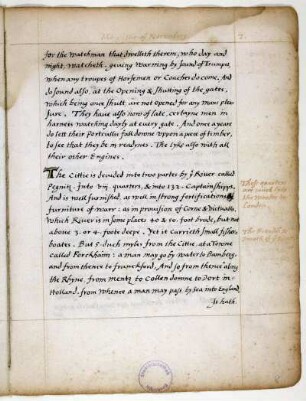 for the Watchman that dwelleth therein, who day and
night Watcheth, geving Warning by sound of Trumpet,
when any troupes of Horseman or Coaches do come, And
do sound also at the Opening & shutting of the gates,
which being one shutt are not opened for any mans plea-
sure. They have also now of late, certayne men in
harnes watching dayly at every gate. And once a yeare
do lett their Portcullis fall downe uppon a peece of timber,
to see that they be in readines. The lyke also with all
their other Engines.
The Cittie is devided into two parts by ye River called
Pegnitz, into viij quarters, & into 132. Captainshipps,
And is well furnished, as well in strong fortifications &
furniture of warr: as in provision of Corne & Victualls,
Which River is in some places 40 & 50. foot brode, but not
above 3. or 4. foote deepe. Yet it Carrieth small fisher
boates. But 5. duch myles from the Cittie at a Towne
called Forchaim: a man may go by Water to Bamberg,
and from thence to franckford, And so from thence along
the Rhyne, from Mentz to Collen downe to Dort in
Holland, from Whence a man may pass by sea into England.
It hath
These quarters
are
the
London.
The